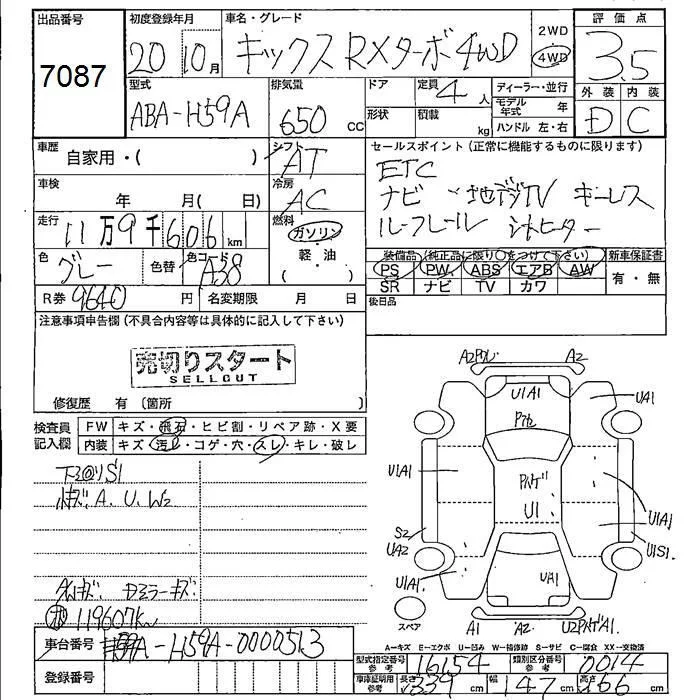 出品番号
7087
初度登録年月
20 10月
車名・グレード
キックス RXターボ 4WD
2WD
4WD
評価点
3.5
外装 内装
D C
型式
ABA-H59A
排気量
650 cc
ドア
定員
4人
形状
積載
kg
ディーラー・並行
モデル年式 年
ハンドル 左・右
車歴
自家用・( )
シフト
AT
車検
年 月( 日)
冷房
AC
走行
11万9千606km
燃料
ガソリン
軽・油
( )
色
グレー
色替
色コード
A38
R券 9640 円
名変期限 月 日
セールスポイント(正常に機能するものに限ります)
ETC
ナビ ・地デジTV キーレス
ルーフレール シートヒーター
装備品 (純正品に限り○をつけて下さい)
新車保証書
PS PW ABS エアB AW
SR ナビ TV カワ
有・無
後日品
注意事項申告欄(不具合内容等は具体的に記入して下さい)
売切りスタート
SELLOUT
修復歴 有 〔箇所 〕
検査員記入欄
FW キズ・飛石・ヒビ割・リペア跡・X要
内装 キズ・汚れ・コゲ・穴・スレ・キレ・破レ
A.U.W2
Dミラーキズ
119607km
車台番号
H59A-0000513
登録番号
A2
A2
U1A1
UA1
U1A1
U1
S2
UA2
U1A1
U1A1
U1S1
UA1
スペア
A1
A2
A=キズ E=エクボ U=凹み W=補修跡 S=サビ C=腐食 XX=交換済
型式指定番号 参考
16154
類別区分番号 参考
0014
車庫証明用 参考
長さ 339cm
幅 147cm
高さ 166cm